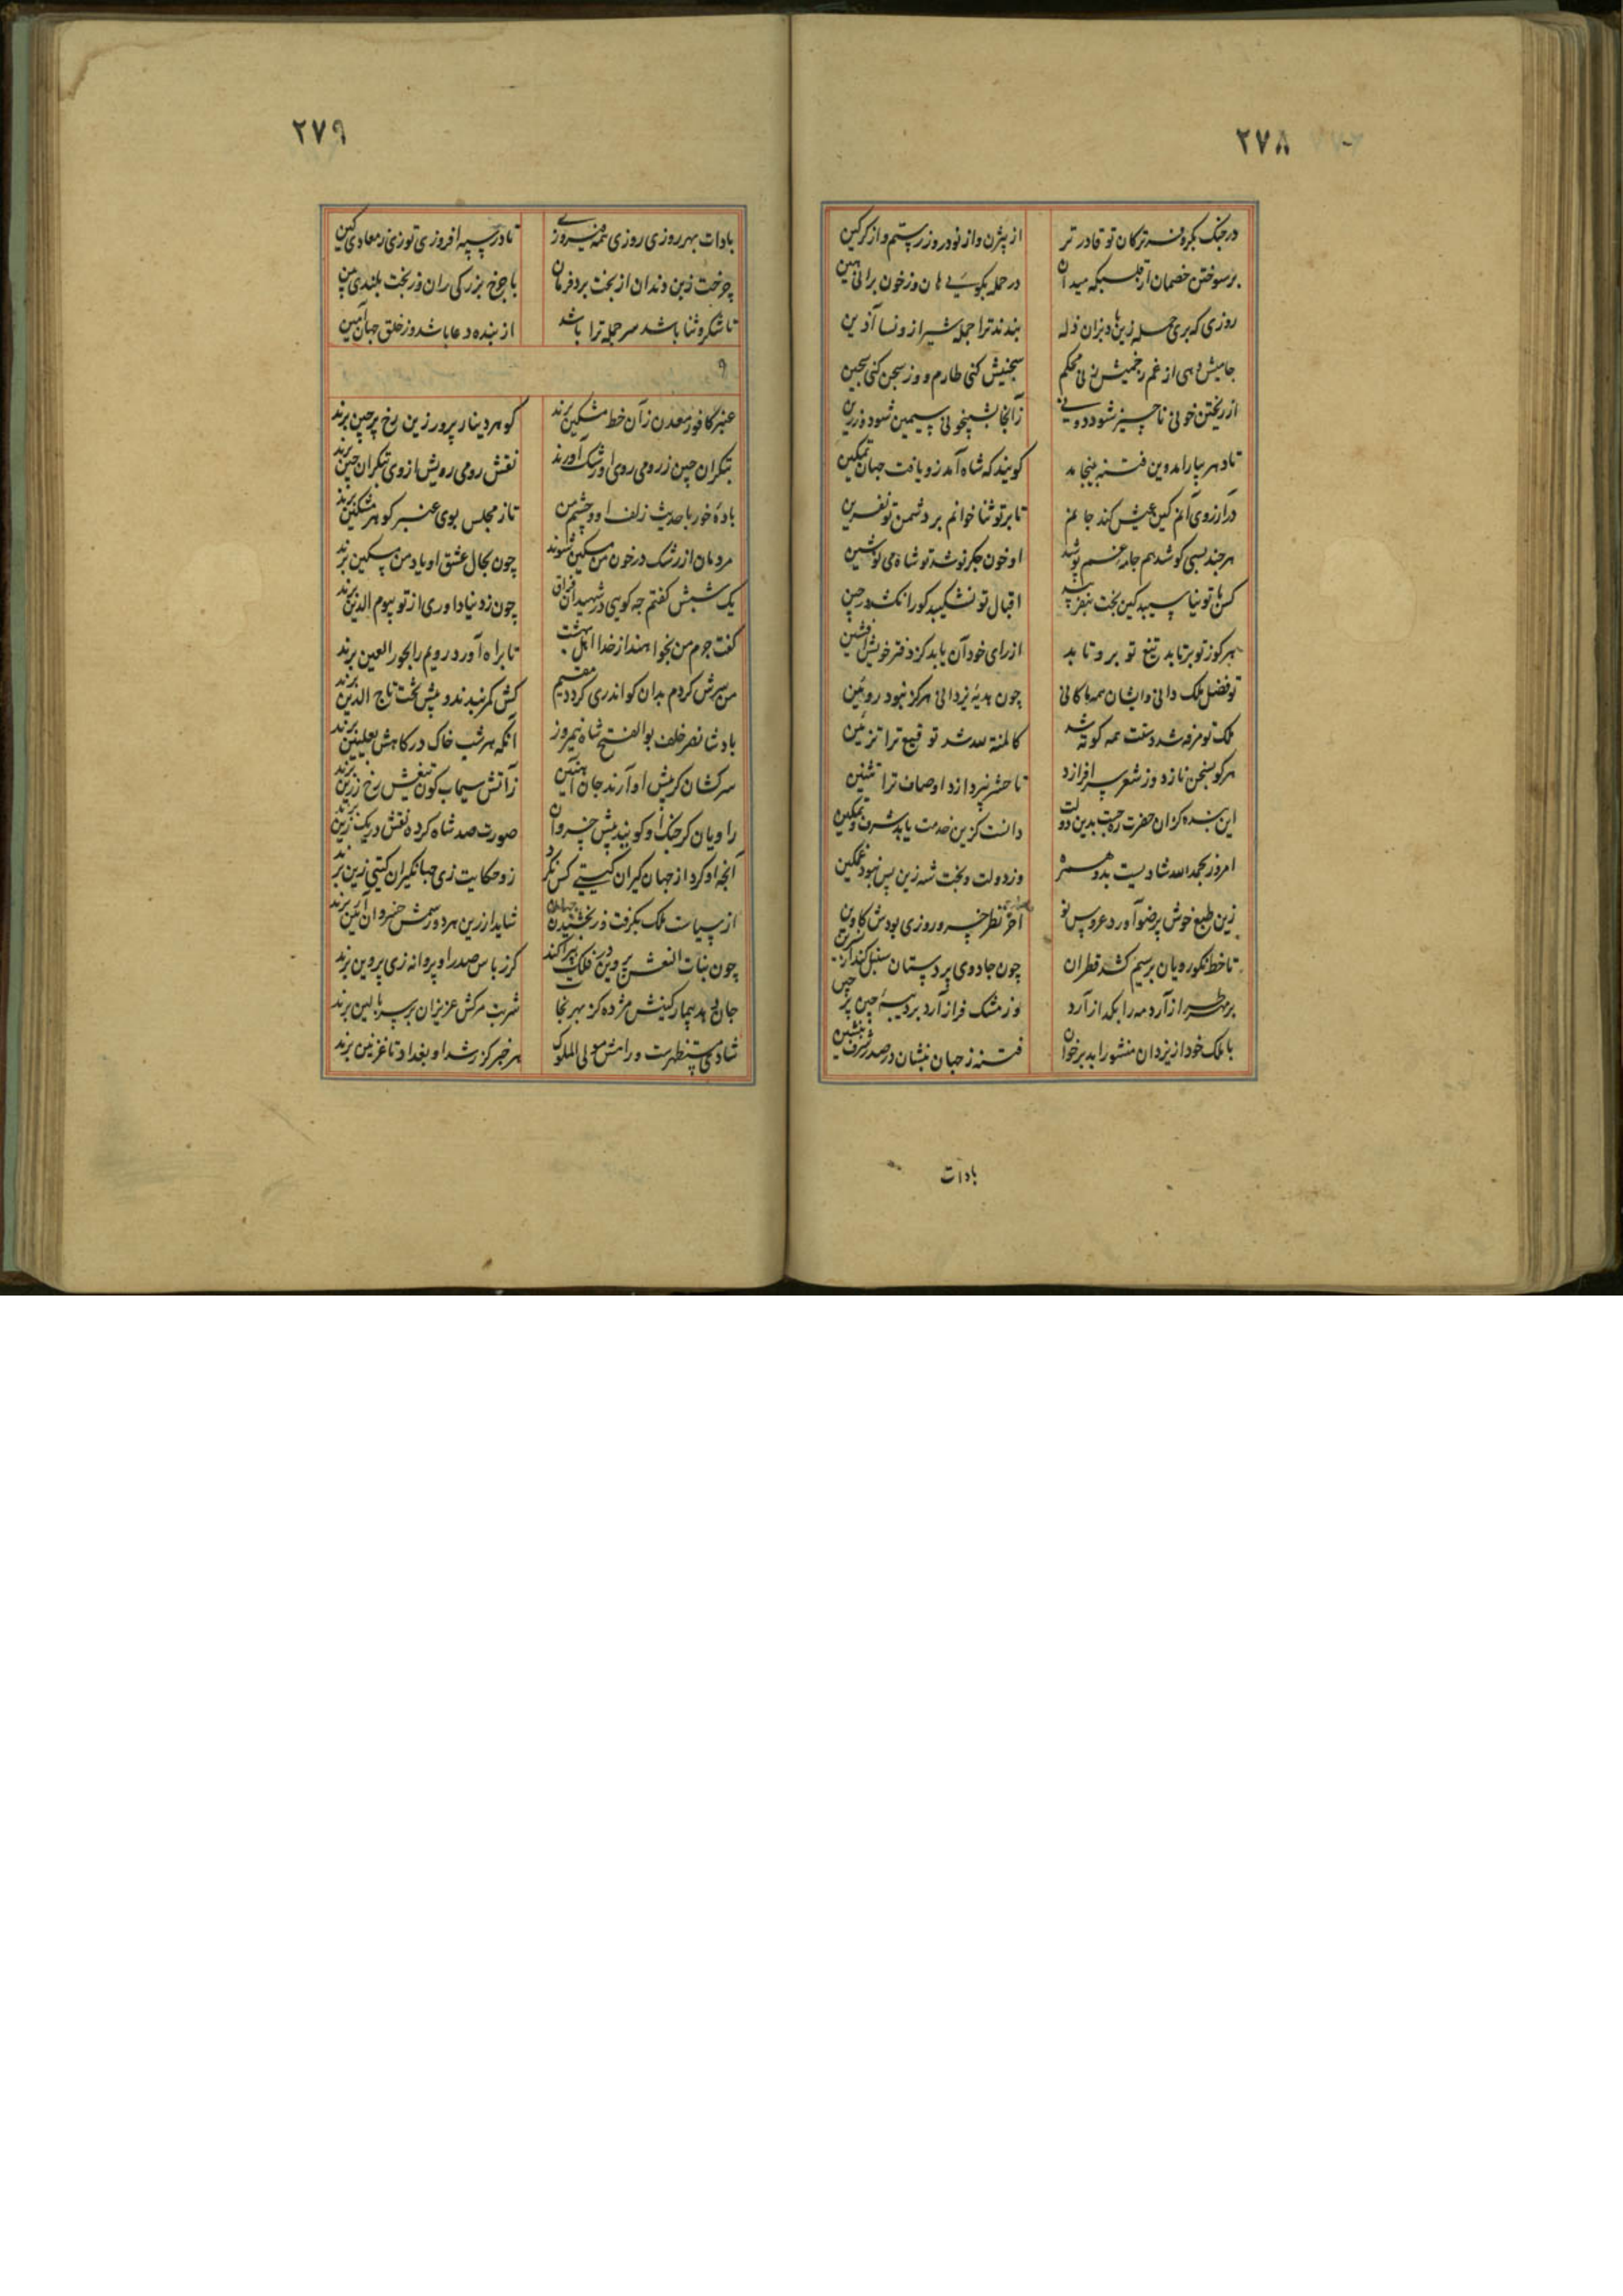 ۲۷۸
در جنگ بکر و فر ترکان تو قادر تر از بیژن و از نوذر وز رستم و از گرگین
بر سوختن خصمان در حمله بگوئی هان وز خون برانی هین
روزی که بری حمله بندند ترا جمله شیراز و نسا آذین
جامیش دهی از غم زخمیش زنی محکم سجنیش کنی طارم و وز سجن کنی سجین
از ریختن خونی ناچیز شود زآنجا بشبیخونی سیمین شود و زرین
تا دهر بیارامد وین فتنه بینجامد گویند که شاه آمد زو یافت جهان تمکین
در آرزوی آنم کین عیش کند جانم تا بر تو ثنا خوانم بر دشمن تو نفرین
هر چند بسی کوشد هم جامه غم پوشد او خون جگر نوشد تو شاه می نوشین
کس با تو نیاسیبد کین بخت اقبال تو نشکیبد کورا نکند
هر کو ز تو برتابد تیغ تو برو تابد از رای خود آن یابد کز دفتر خویش افشین
تو فضل ملک دانی وایشان همه ماکانی چون هدیه یزدانی هرگز نبود روئین
ملک تو مرفه شد دستت همه کوته شد کالمنة لله شد توقیع ترا تزئین
هر کو بسخن نازد وز شعر سر افرازد تا حشر نپردازد اوصاف ترا
این بنده کزان حضرت بدین دولت دانست کزین خدمت یابد شرف و تمکین
امروز بحمدالله شادیست بدو همره وز دولت و بخت شه زین پس نبود غمگین
زین طبع خوش پرضو آورد عروس نو آخر نظر خسرو روزی بودش کاوین
تا خط نکورویان بر سیم کشد قطران چون جادوی پر دستان سنبل کند از نسرین
بر مهر طراز آرد مه را بگداز آرد وز مشک فراز آرد بر دیبه چین پر چین
با ملک خود از یزدان منشور ابد بر خوان فتنه ز جهان بنشان در صدر شرف بنشین
بادات
۲۷۹
بادات بهر روزی روزی همه فیروزی تا در سپه افروزی توزی ز معادی کین
چرخت زبن دندان از بخت برد فرمان با چرخ بزرگی ران وز بخت بلندی بین
تا شکر و ثنا باشد سر جمله ترا باشد از بنده دعا باشد وز خلق جهان آمین
۹
عنبر کافور معدن زآن خط مشکین برند گوهر دینار پرور زین رخ پرچین برند
بتگران چین ز رومی روی او رشک آورند نقش رومی رویش از وی بتگران چین برند
باده خور با حدیث زلف او و چشم من تا ز مجلس بوی عنبر گوهر مشکین برند
مردمان از رشک در خون من مسکین شوند چون بحال عشق او یاد من مسکین برند
یک شبش گفتم چه گوئی در شهیدان فراق چون ز دنیا داوری از تو بیوم الدین برند
گفت جرم من بخواهند از خدا اهل بهشت تا براه آورد رویم را بحور العین برند
من سرش کردم بدان کو اندری گردد مقیم کش کمر بندند و پیش تخت تاج الدین برند
بادشا نصر خلف بوالفتح شاه نیمروز آنکه هر شب خاک درگاهش بعلیین برند
سرکشان کز پیش او آرند جان آهنین ز آتش سیماب گون تیغش رخ زرین برند
راویان کز جنگ او گویند پیش خسروان صورت صد شاه کرده نقش در یک زین برند
آنچه او کرد از جهان گیران گیتی کس نکرد زو حکایت زی جهانگیران گیتی زین برند
از سیاست ملک بگرفت و ز بخشیدن جهان شاید ار زین هر دو رسمش خسروان آئین برند
چون بنات النعش پروین در فلک بپراکند گر ز باس صدر او پروانه زی پروین برند
جان دهد بیمار کینش مژده کز بهر نجا شربت مرگش عزیزان بر سر بالین برند
شادمی مستظهرست و رامش مولی الملوک هر خبر کز رشد او بغداد تا غزنین برند